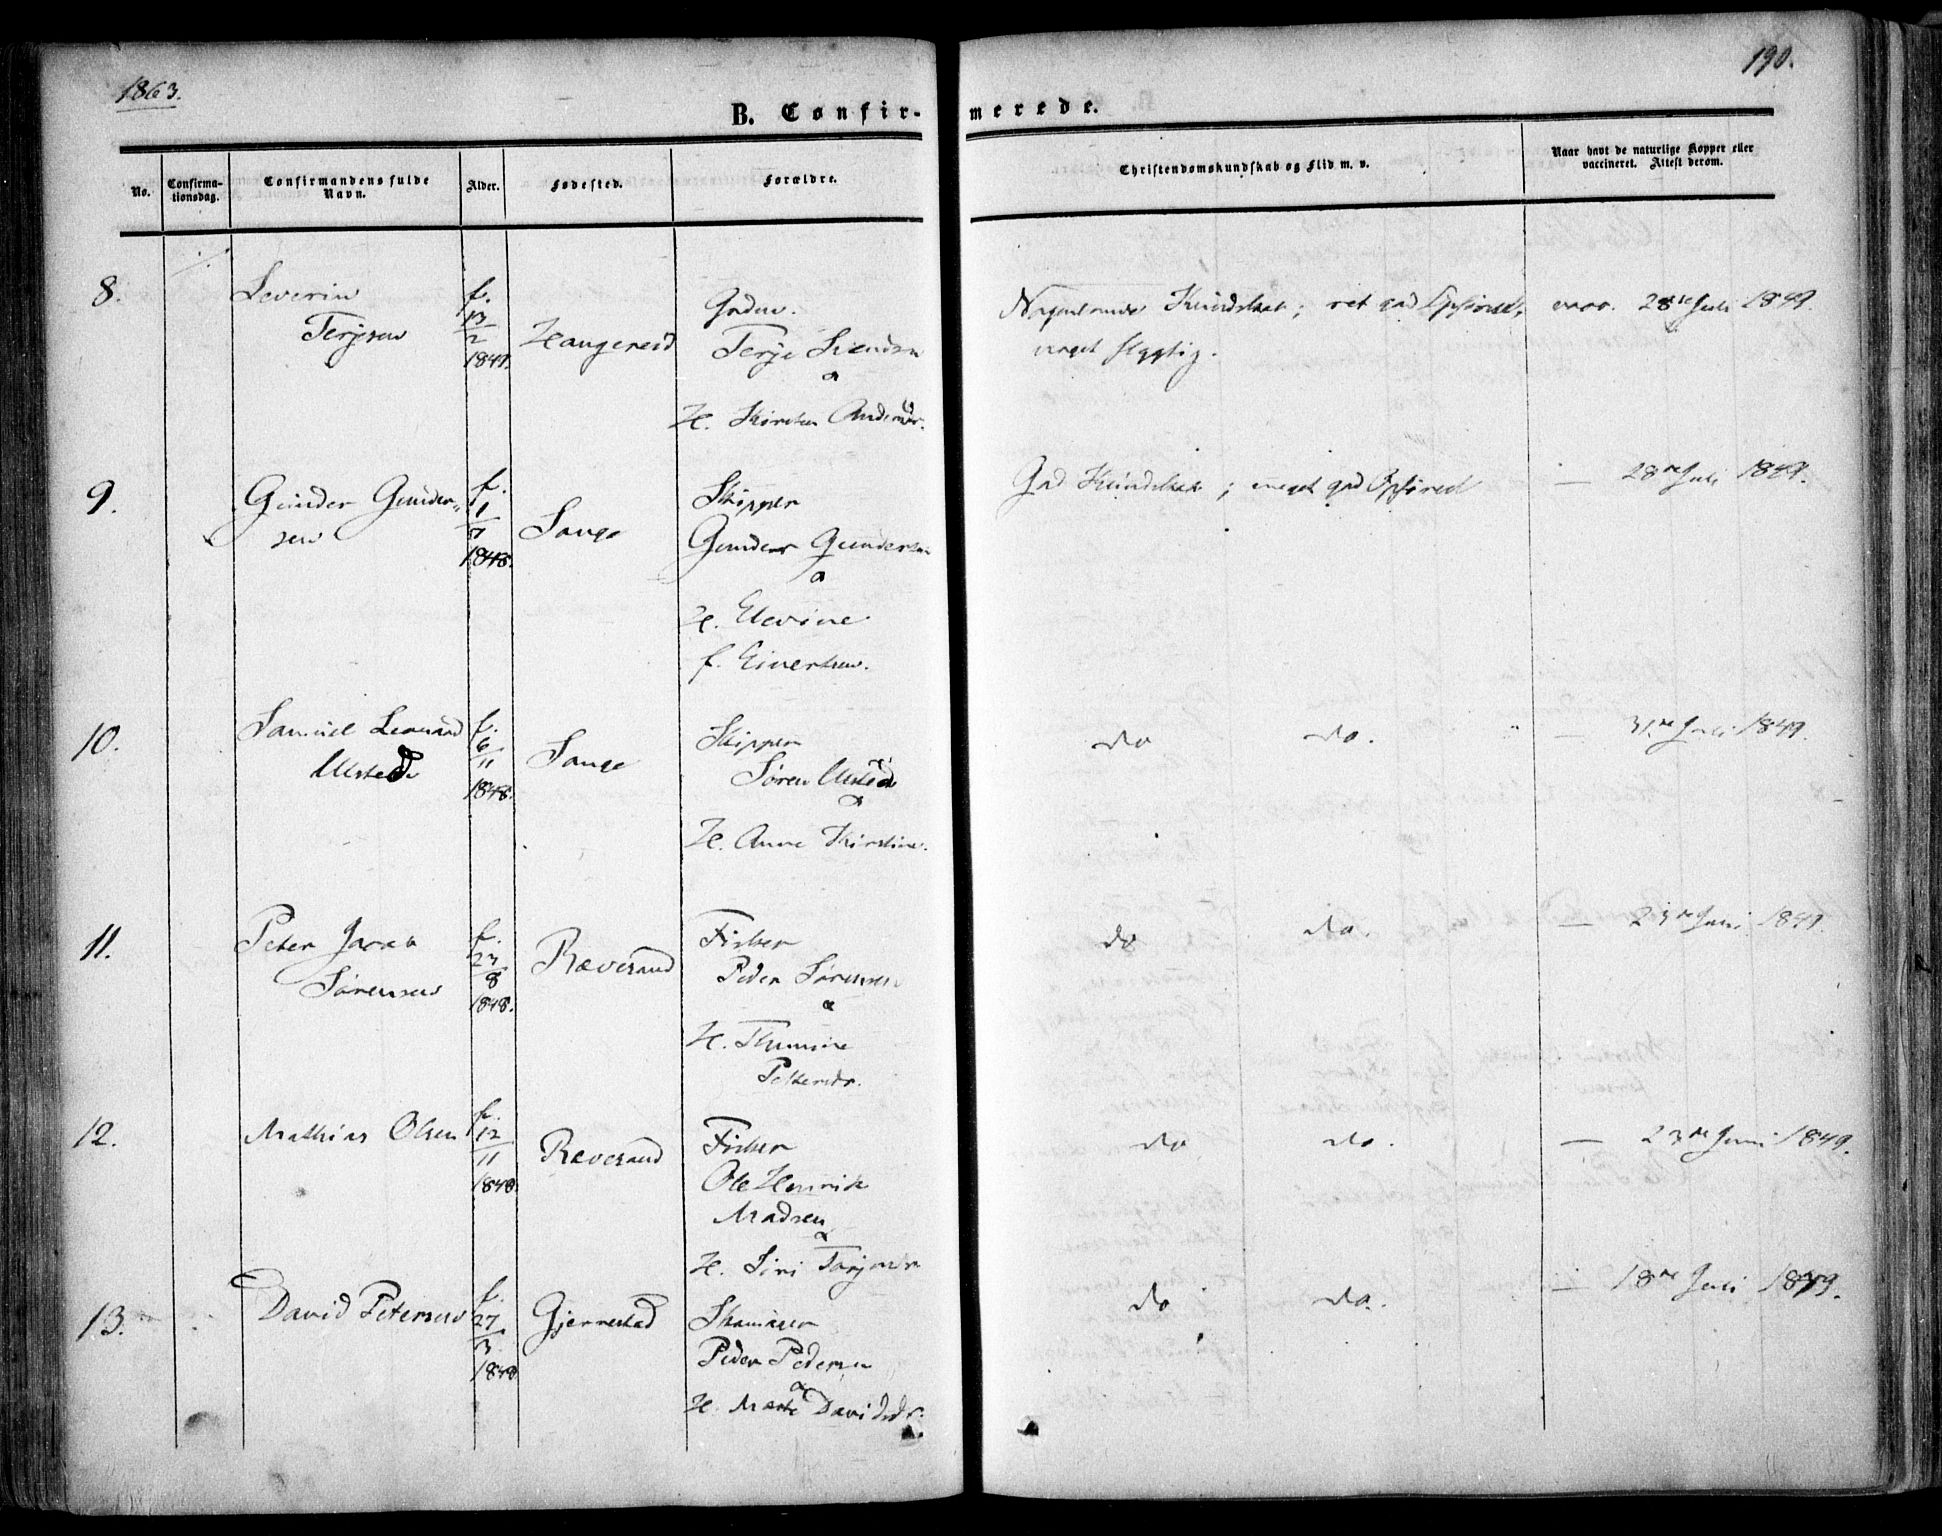 1863.
190.
B. Confirmerede.
No.
Confirmationsdag.
Confirmandens fulde Navn.
Alder.
Fødested.
Forældre.
Christendomskundskab og Flid m. v.
Naar havt de naturlige Kopper eller vaccineret. Attest derom.
8.
Severin
Terjesen
f. 13/2 1849.
Terje Svendsen
&
H. Kirsten Andersdr.
Kundskab; ret god Opførsel,
meget flygtig.
vacc. 28de Juli 1849.
9.
Gunder Gunder-
sen
f. 1/7 1848.
Songe
Skipper
Gunder Gundersen
&
H. Elevine
f. Eivertsen.
God Kundskab; meget god Opførsel
— 28de Juli 1849.
10.
Samuel Leonard
Ulsted
f. 6/11 1848.
Songe
Skipper
Søren Ulsted
&
H. Anne Kirstine.
do do.
" 31te Juli 1849.
11.
Peter
Sørensen
f. 27/8 1848.
Rævesand
Fisker
Peder Sørensen
&
H. Thomine
Petersdr.
do do.
— 23de Juni 1849.
12.
Mathias Olsen
f. 12/11 1848.
Rævesand
Fisker
Ole Henrik
Madsen
&
H. Siri Torjesdr
do do.
— 23de Juni 1849.
13.
David Petersen
f. 27/3 1848
Gjernestad
Peder Pedersen
&
H. Marte Davidsdr.
do do.
— 18de Juli 1849.